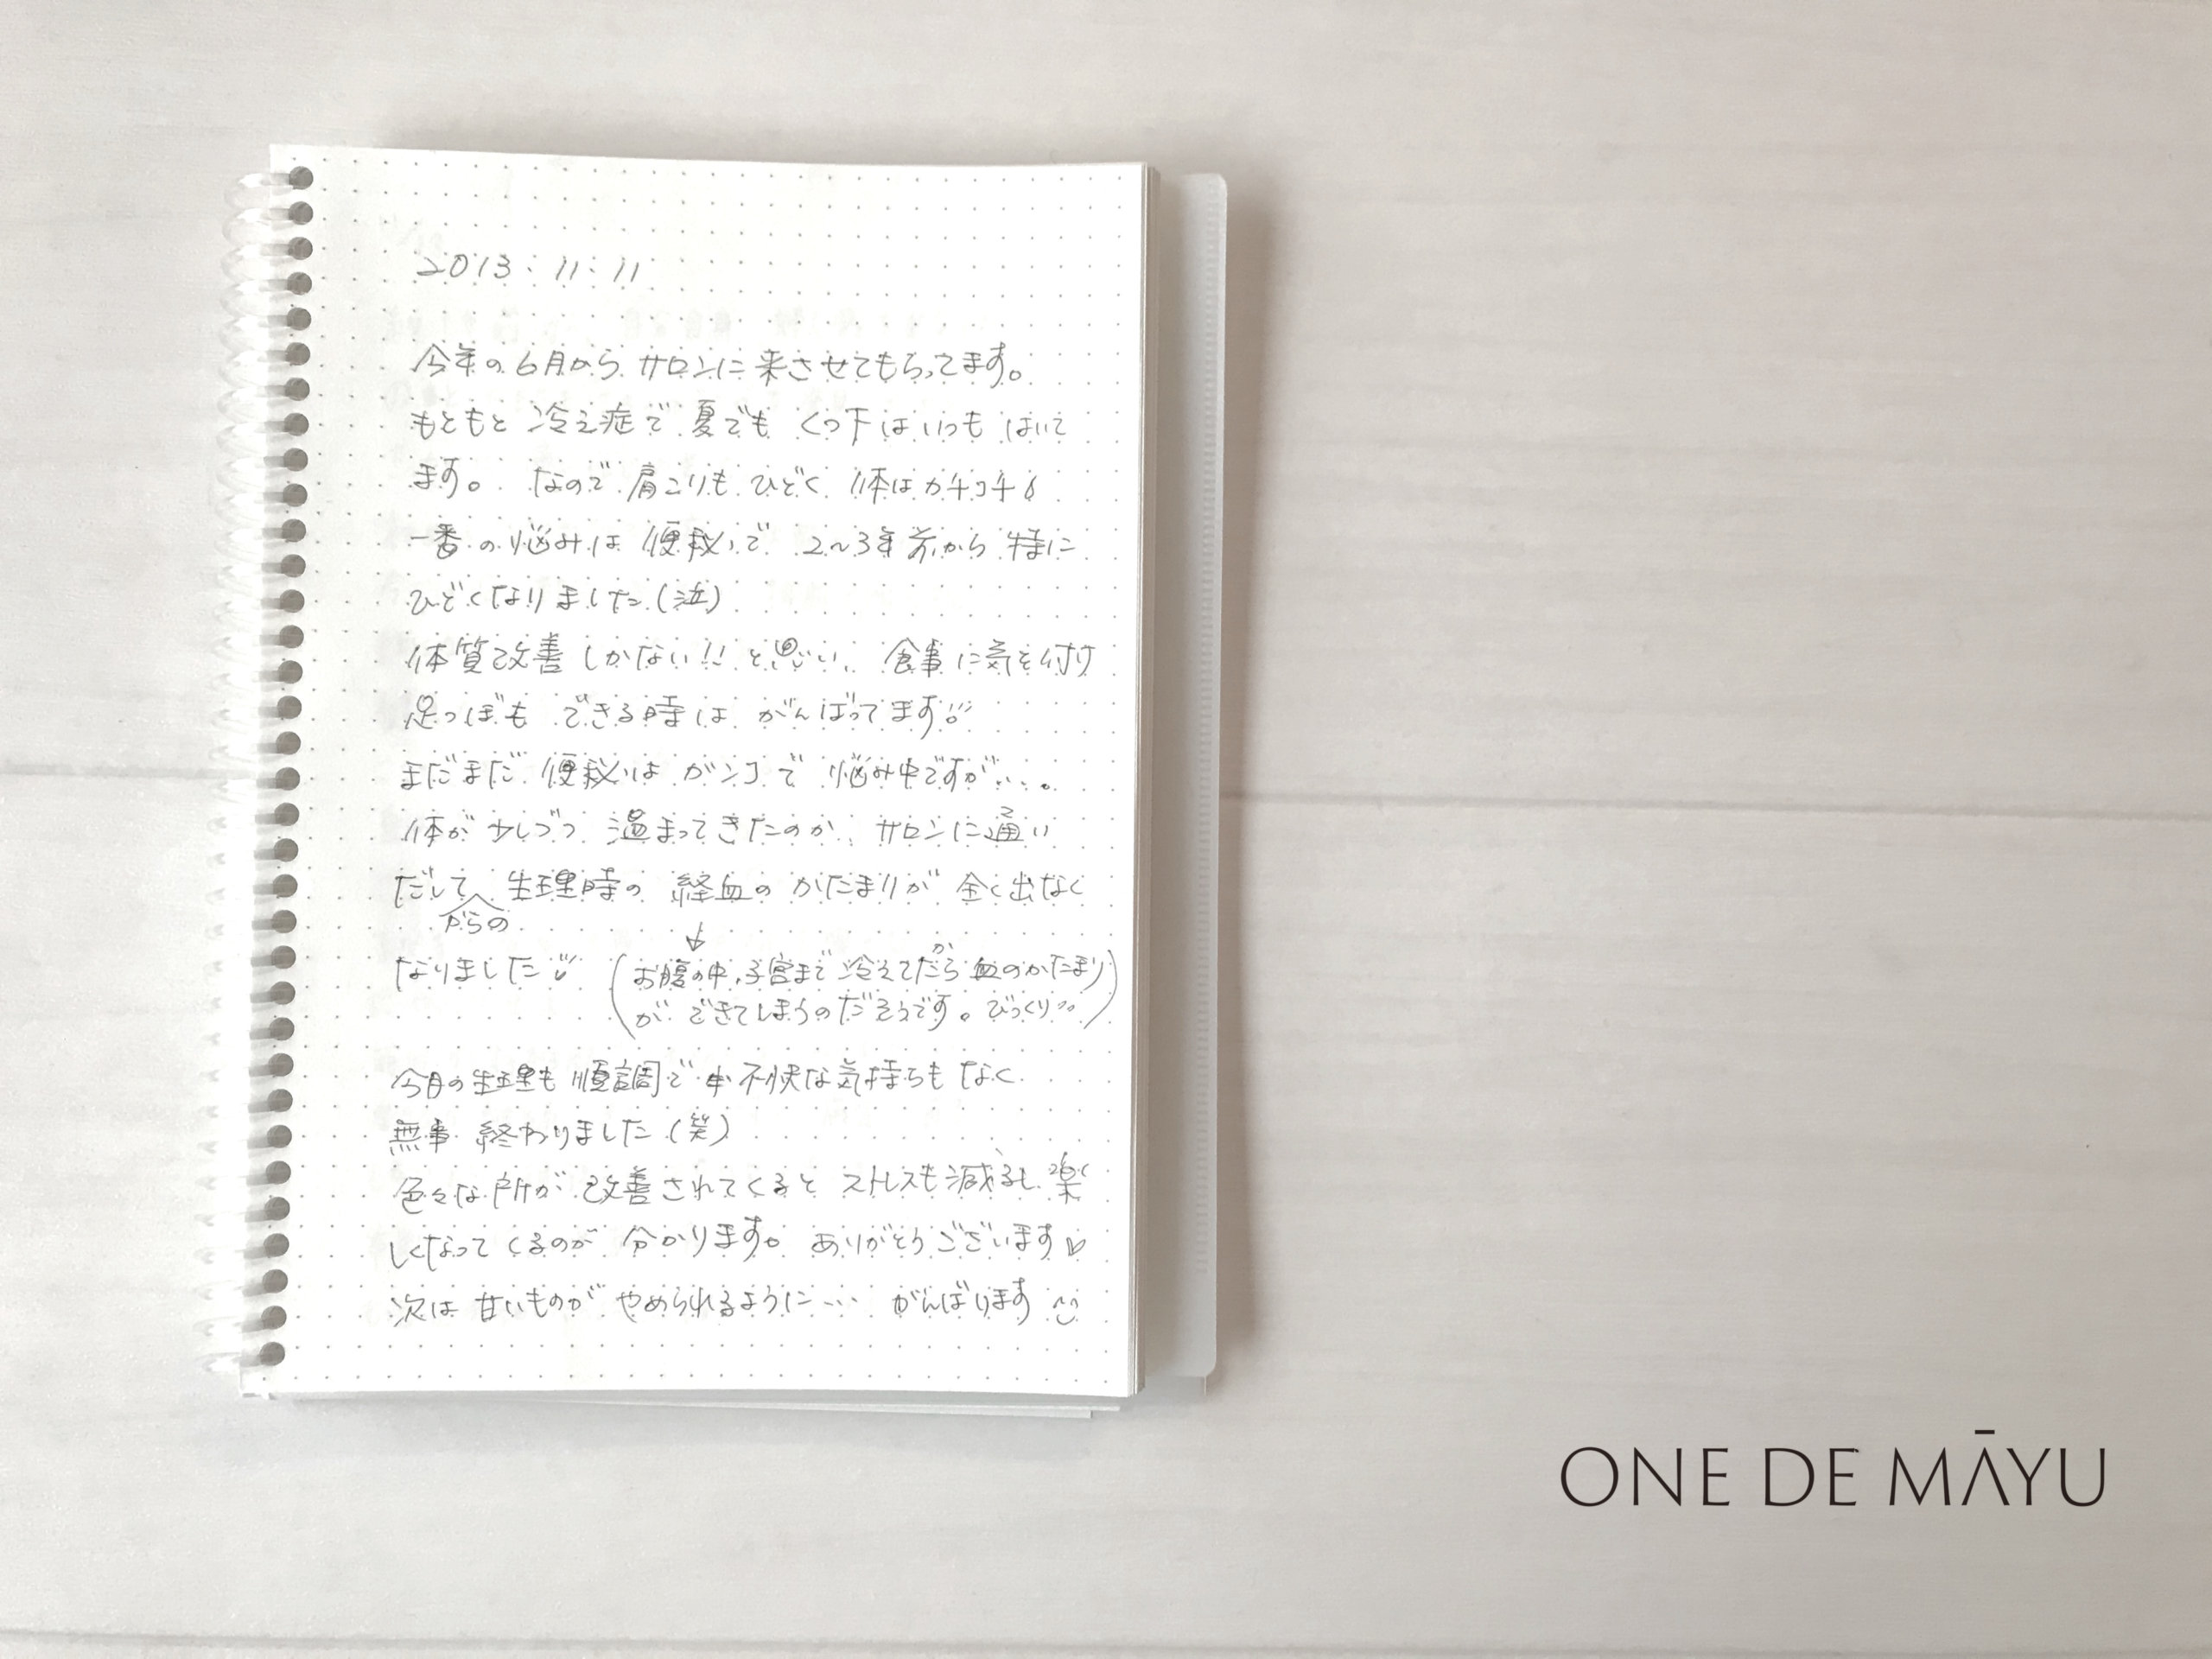 2013.11.11
今年の6月からサロンに来させてもらってます。
もともと冷え症で夏でもくつ下はいつもはいて
ます。なので肩こりもひどく体はカチコチ
一番の悩みは便秘で2〜3年前から特に
ひどくなりました(泣)
体質改善しかない!!と思い、食事に気を付け
足つぼもできる時はがんばってます!!
まだまだ便秘はガンコで悩み中ですが...。
体が少しづつ温まってきたのか、サロンに通い
だして 生理時の経血のかたまりが全く出なく
からの
↓
なりました
(お腹の中、子宮まで冷えてたから血のかたまり
ができてしまうのだそうです。びっくり)
今月の生理も順調で不快な気持ちもなく
無事終わりました(笑)
色々な所が改善されてくるとストレスも減るし、楽
しくなってくるのが分かります。ありがとうございます♡
次は甘いものがやめられるように… がんばります
ONE DE MĀYU